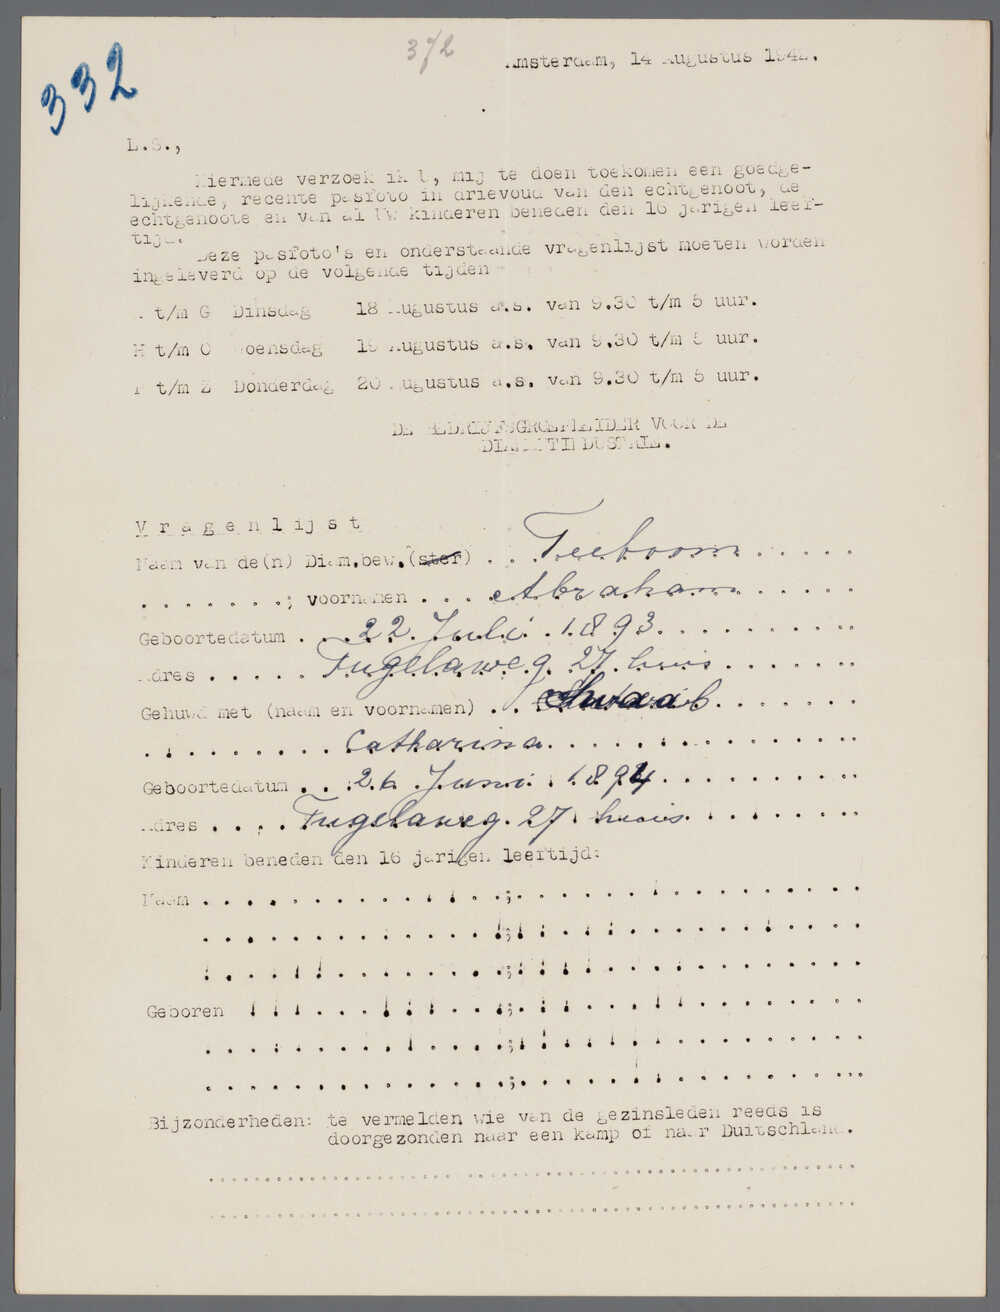 332
372
Amsterdam, 14 Augustus 1942.
L.S.,
Hiermede verzoek ik U, mij te doen toekomen een goedge-
lijkende, recente pasfoto in drievoud van den echtgenoot, de
echtgenoote en van al Uw kinderen beneden den 16 jarigen leef-
tijd.
Deze pasfoto's en onderstaande vragenlijst moeten worden
ingeleverd op de volgende tijden
A t/m G Dinsdag 18 Augustus a.s. van 9.30 t/m 5 uur.
H t/m O Woensdag 19 Augustus a.s. van 9.30 t/m 5 uur.
P t/m Z Donderdag 20 Augustus a.s. van 9.30 t/m 5 uur.
DE BEDRIJFSGROEPLEIDER VOOR DE
DIAMANTINDUSTRIE.
Vragenlijst
Naam van de(n) Diam.bew.(ster) . . Teeboom . . . . .
. . . . . . .; voornamen . . . Abraham . . . . .
Geboortedatum . . 22 Juli 1893 . . . . . . . . .
Adres . . . . . Tugelaweg 27 huis . . . . . .
Gehuwd met (naam en voornamen) . . Schwaab . . . . . . .
. . . . . . . . . Catharina . . . . . . . . . . . . . .
Geboortedatum . . 26 Juni 1894 . . . . . . . . .
Adres . . . . Tugelaweg 27 huis . . . . . . . .
Kinderen beneden den 16 jarigen leeftijd:
Naam . . . . . . . . . . . . . ; . . . . . . . . . . . . . . .
. . . . . . . . . . . . . ; . . . . . . . . . . . . . . .
. . . . . . . . . . . . . ; . . . . . . . . . . . . . . .
Geboren . . . . . . . . . . . . ; . . . . . . . . . . . . . . .
. . . . . . . . . . . . . ; . . . . . . . . . . . . . . .
. . . . . . . . . . . . . ; . . . . . . . . . . . . . . .
Bijzonderheden: te vermelden wie van de gezinsleden reeds is
doorgezonden naar een kamp of naar Duitschland.
. . . . . . . . . . . . . . . . . . . . . . . . . . . . . .
. . . . . . . . . . . . . . . . . . . . . . . . . . . . . .